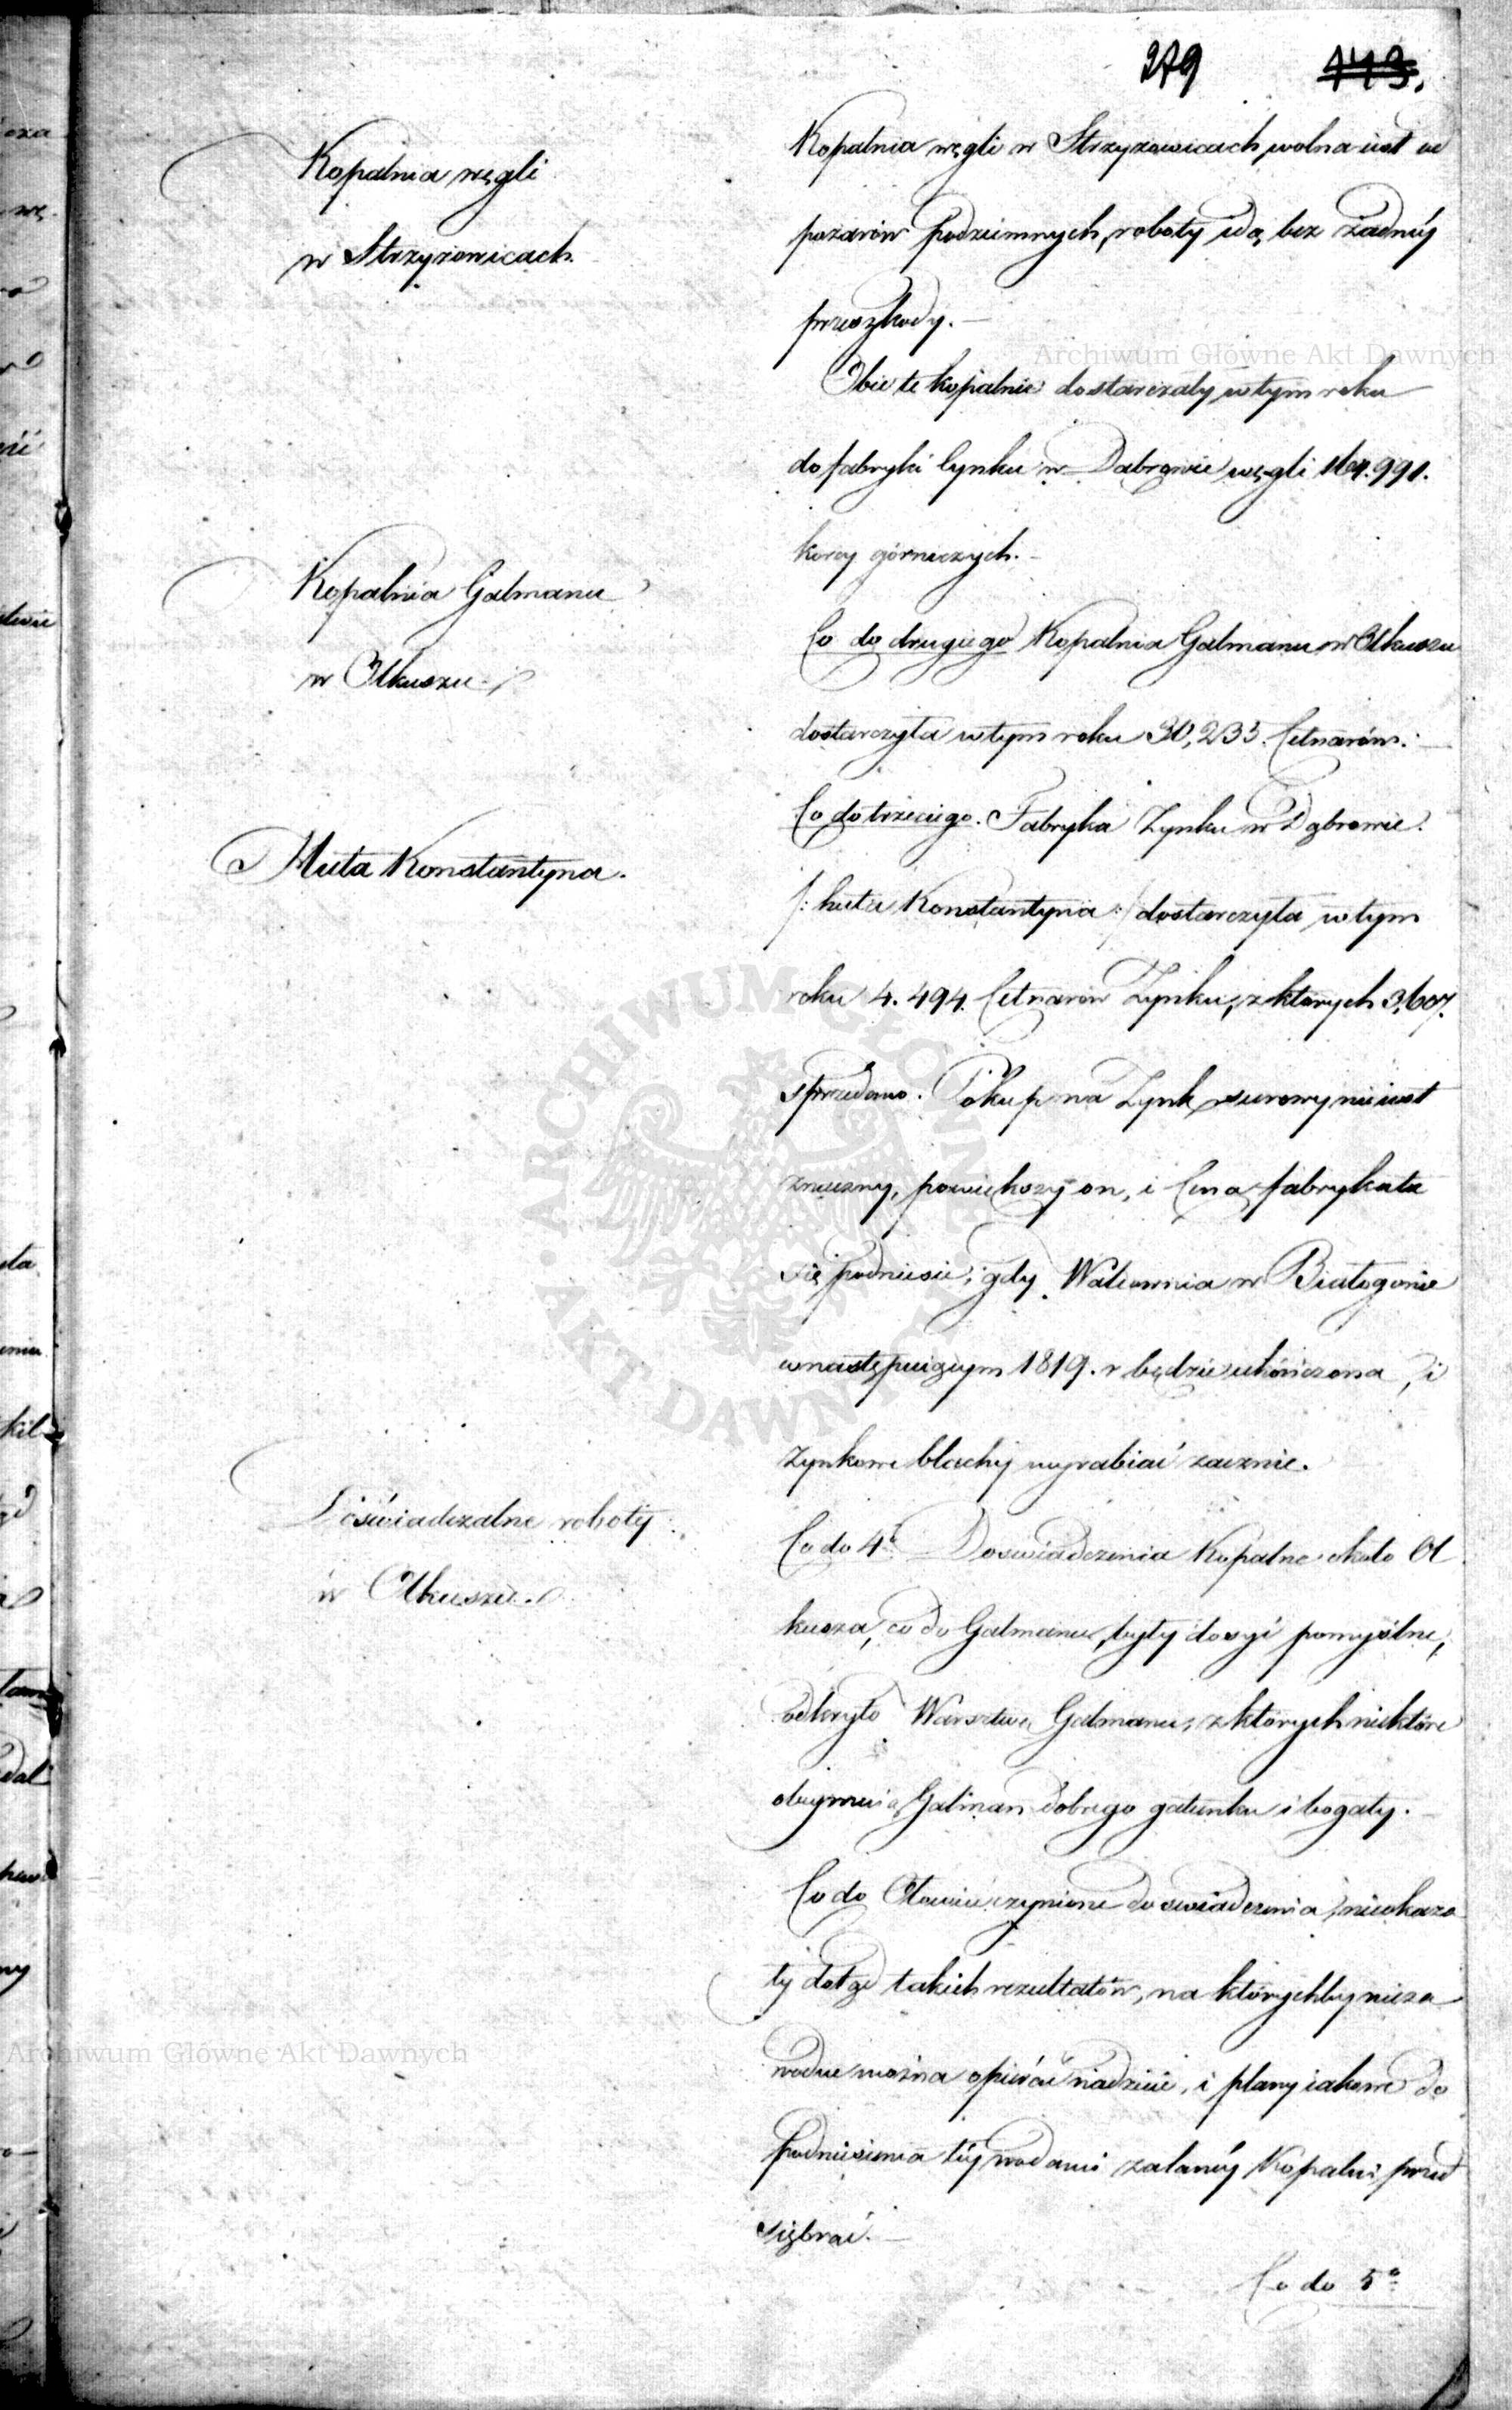 279 143.
Kopalnia węgli
w Strzyżowicach.
Kopalnia węgli w Strzyżowicach, wolna iest od
pożarów podziemnych, roboty idą bez żadnéy
przeszkody. —
Obie te kopalnie dostarczały w tym roku
do fabryki Cynku w Dąbrowie węgli 164.991.
korcy górniczych. —
Kopalnia Galmanu
w Olkuszu.
Co do drugiego Kopalnia Galmanu w Olkuszu
dostarczyła w tym roku 30,233. Cetnarów. —
Huta Konstantyna.
Co do trzeciego. Fabryka Zynku w Dąbrowie.
/: huta Konstantyna :/ dostarczyła w tym
roku 4.494. Cetnarów Zynku, z których 3,607.
sprzedano. Pokup na Zynk surowy nie iest
znaczny, powiększy on, i Cena fabrykata
się podniesie, gdy Walcownia w Białogonie
w następuiącym 1819. r będzie ukończona, i
Zynkowe blachy wyrabiać zacznie.
Doświadczalne roboty
w Olkuszu.
Co do 4º Doswiadczenia Kopalne około Ol
kusza, co do Galmanu, były dosyć pomyślne,
odkryto Warsztwy Galmanu, z których niektóre
obeymuią Galman dobrego gatunku i bogaty. —
Co do Ołowiu czynione doswiadczenia, nieokaza
ły dotąd takich rezultatów, na którychby nieza
wodne można opierać nadzieie, i plany iakowe do
podniesienia téy wodami zalanéy Kopalni przed
siębrać. —
Co do 5º
Archiwum Główne Akt Dawnych
Archiwum Główne Akt Dawnych
ARCHIWUM GŁÓWNE AKT DAWNYCH